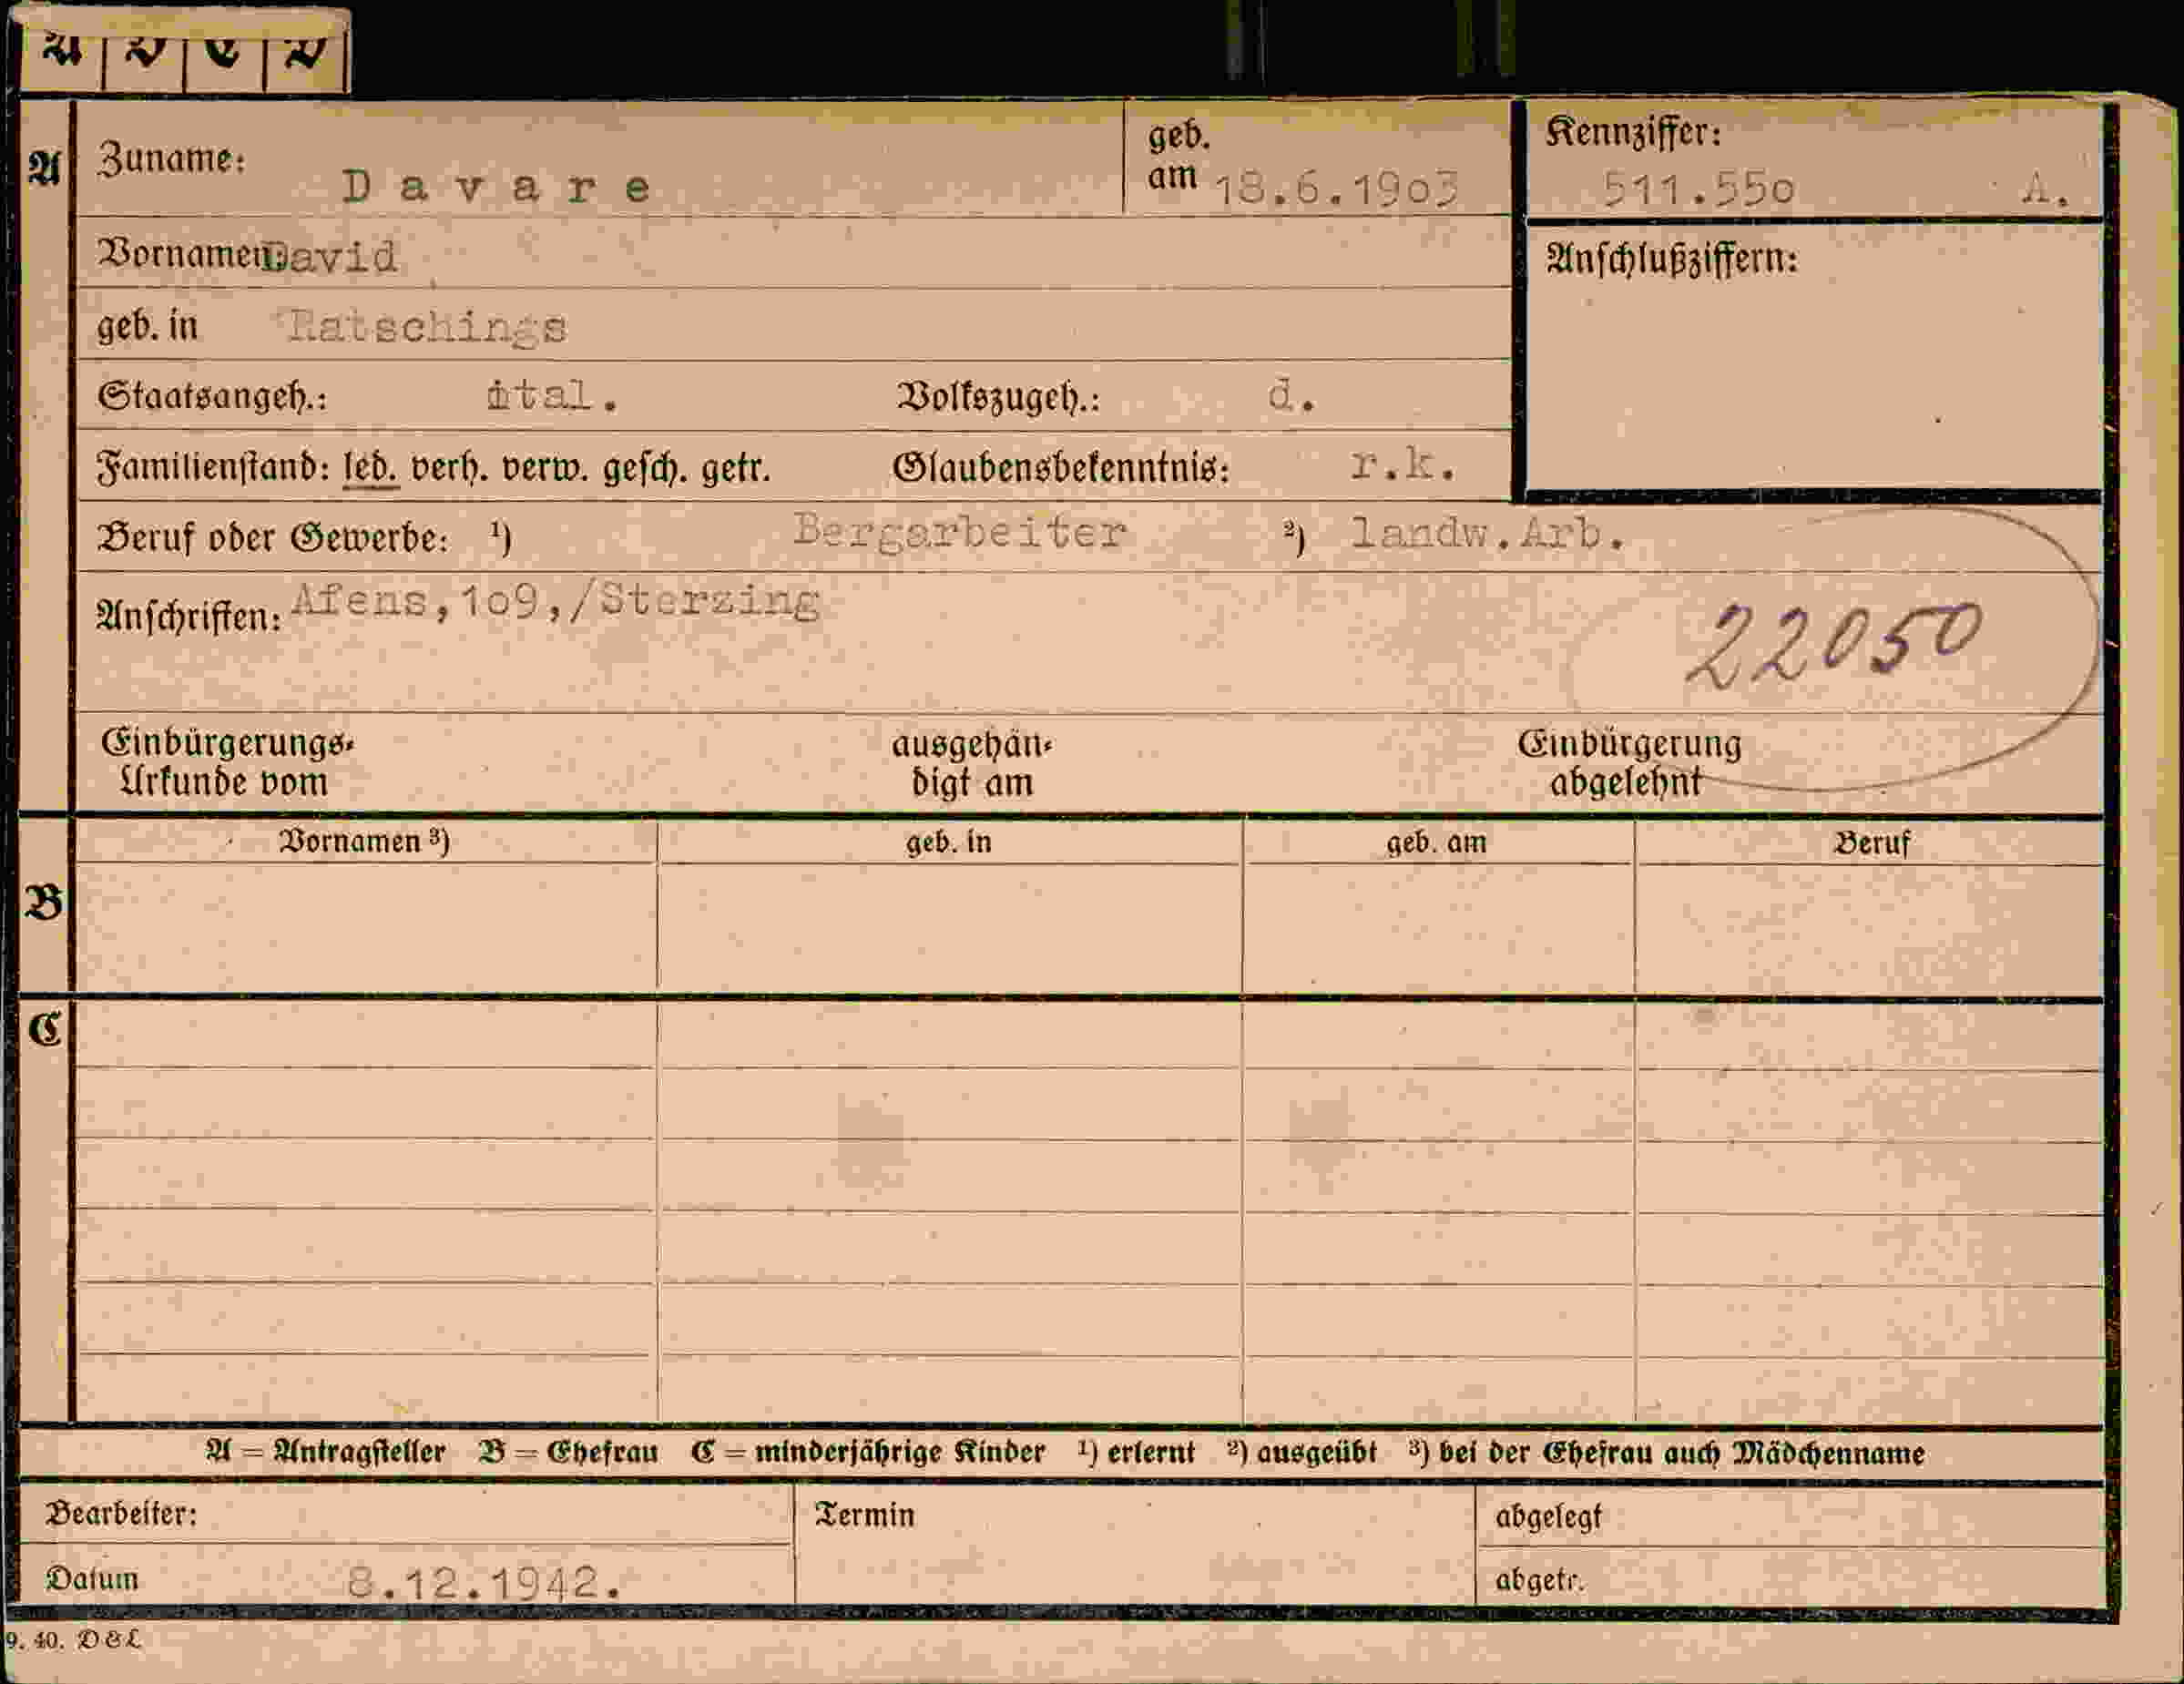 A B C D
A Zuname: Davare geb. am 18.6.1903 Kennziffer: 511.550 A.
Vornamen: David Anschlußziffern:
geb. in Ratschings
Staatsangeh.: ital. Volkszugeh.: d.
Familienstand: led. verh. verw. gesch. getr. Glaubensbekenntnis: r.k.
Beruf oder Gewerbe: ¹) Bergarbeiter ²) landw.Arb.
Anschriften: Afens,109,/Sterzing
22050
Einbürgerungs- ausgehän- Einbürgerung
Urkunde vom digt am abgelehnt
Vornamen ³) geb. in geb. am Beruf
B
C
A = Antragsteller B = Ehefrau C = minderjährige Kinder ¹) erlernt ²) ausgeübt ³) bei der Ehefrau auch Mädchenname
Bearbeiter: Termin abgelegt
Datum 8.12.1942. abgetr.
9. 40. D&L